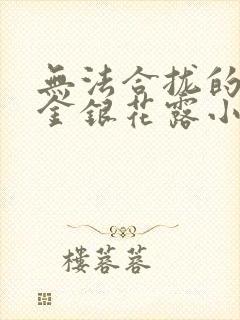 無法合拢的
金銀花露小
樓蓉蓉